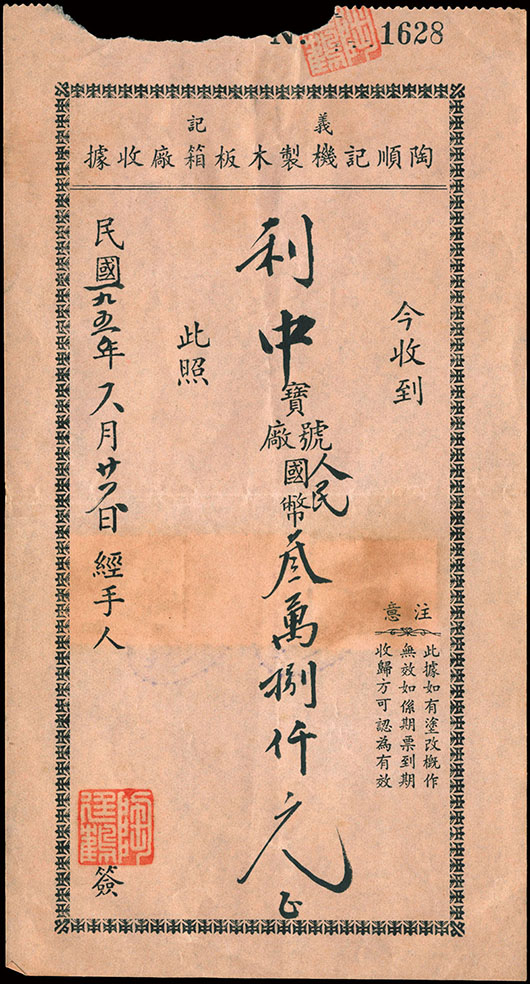 1628
義記
陶順記機製木板箱廠收據
今收到
利中寶號廠人民國幣叁萬捌仟元正
此照
民國一九五年八月廿日經手人
簽
注意
此據如有塗改概作
無效如係期票到期
收歸方可認為有效